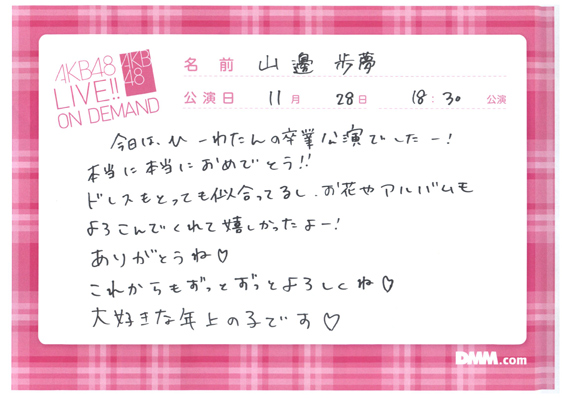 AKB48
LIVE!!
ON DEMAND
AKB
48
名前 山邊 歩夢
公演日 11月 28日 18:30 公演
今日は、ひーわたんの卒業公演でしたー!
本当に本当におめでとう!!
ドレスもとっても似合ってるし、お花やアルバムも
よろこんでくれて嬉しかったよー!
ありがとうね♡
これからもずっとずっとよろしくね♡
大好きな年上の子です♡
DMM.com